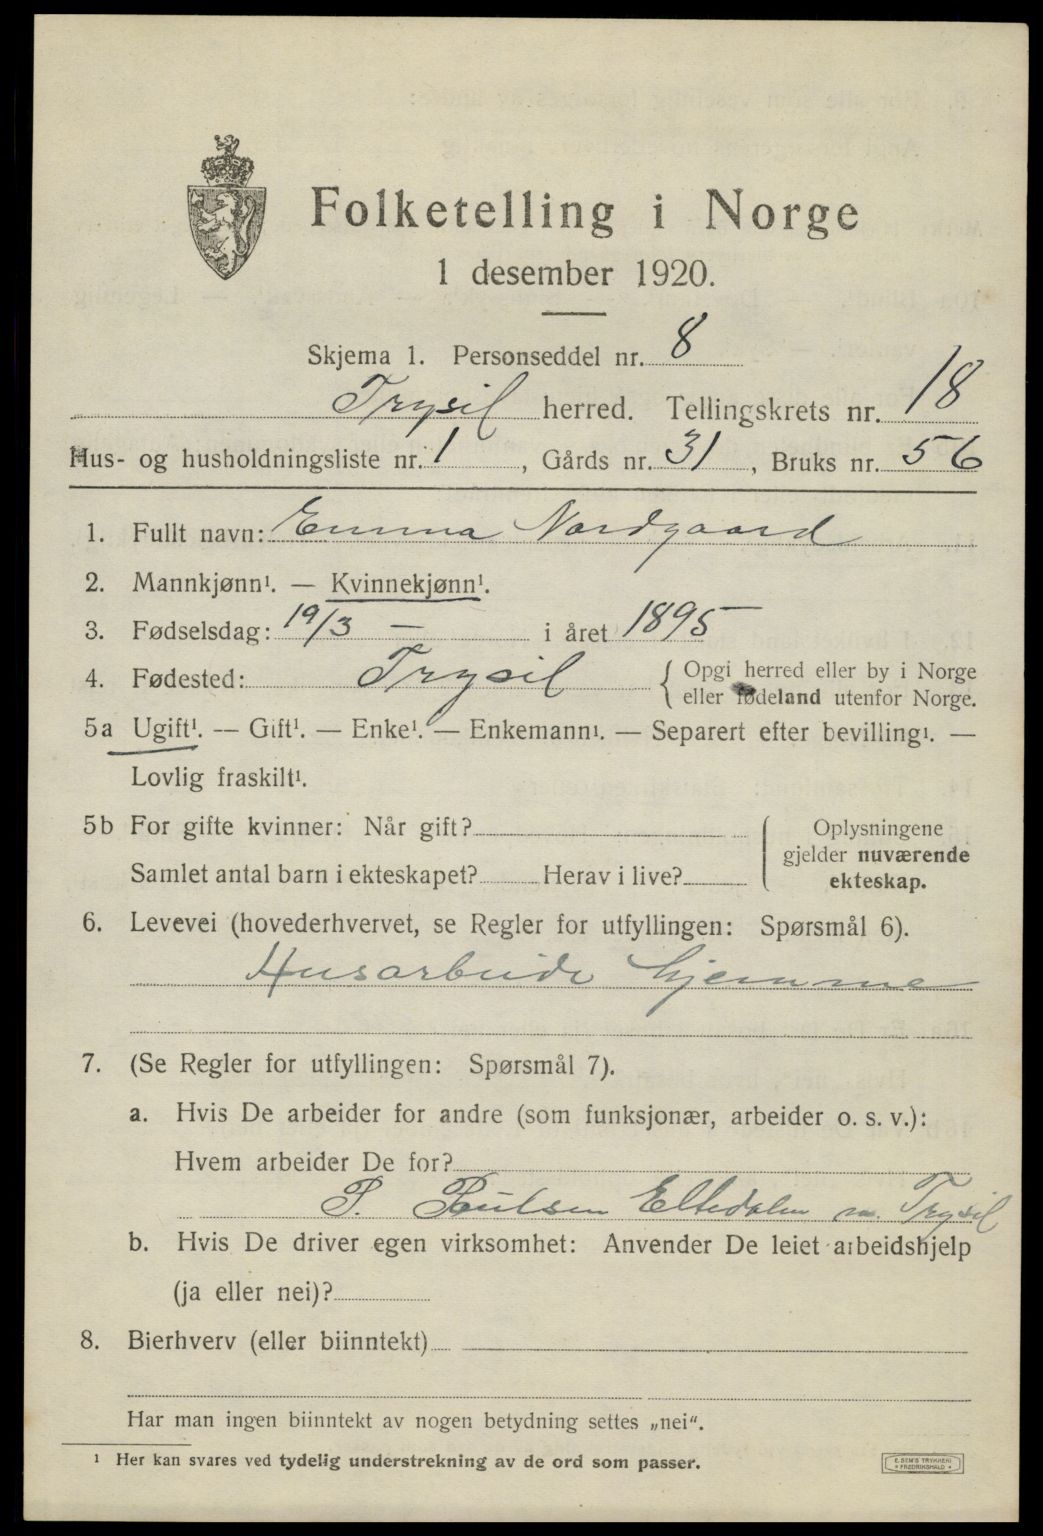 Folketelling i Norge
1 desember 1920.
Skjema 1. Personseddel nr. 8
Trysil herred. Tellingskrets nr. 18
Hus- og husholdningsliste nr. 1, Gårds nr. 31, Bruks nr. 56
1. Fullt navn: Emma Nordgaard
2. Mannkjønn¹. — Kvinnekjønn¹.
3. Fødselsdag: 19/3 – i året 1895
4. Fødested: Trysil { Opgi herred eller by i Norge
eller fødeland utenfor Norge.
5a Ugift¹. — Gift¹. — Enke¹. — Enkemann¹. — Separert efter bevilling¹. —
Lovlig fraskilt¹.
5b For gifte kvinner: Når gift?
Samlet antal barn i ekteskapet? Herav i live?
Oplysningene
gjelder nuværende
ekteskap.
6. Levevei (hovederhvervet, se Regler for utfyllingen: Spørsmål 6).
Husarbeide hjemme
7. (Se Regler for utfyllingen: Spørsmål 7).
a. Hvis De arbeider for andre (som funksjonær, arbeider o. s. v.):
Hvem arbeider De for?
P. Paulsen Eltedalen Trysil
b. Hvis De driver egen virksomhet: Anvender De leiet arbeidshjelp
(ja eller nei)?
8. Bierhverv (eller biinntekt)
Har man ingen biinntekt av nogen betydning settes „nei“.
¹ Her kan svares ved tydelig understrekning av de ord som passer.
E. SEM'S TRYKKERI
• FREDRIKSHALD •